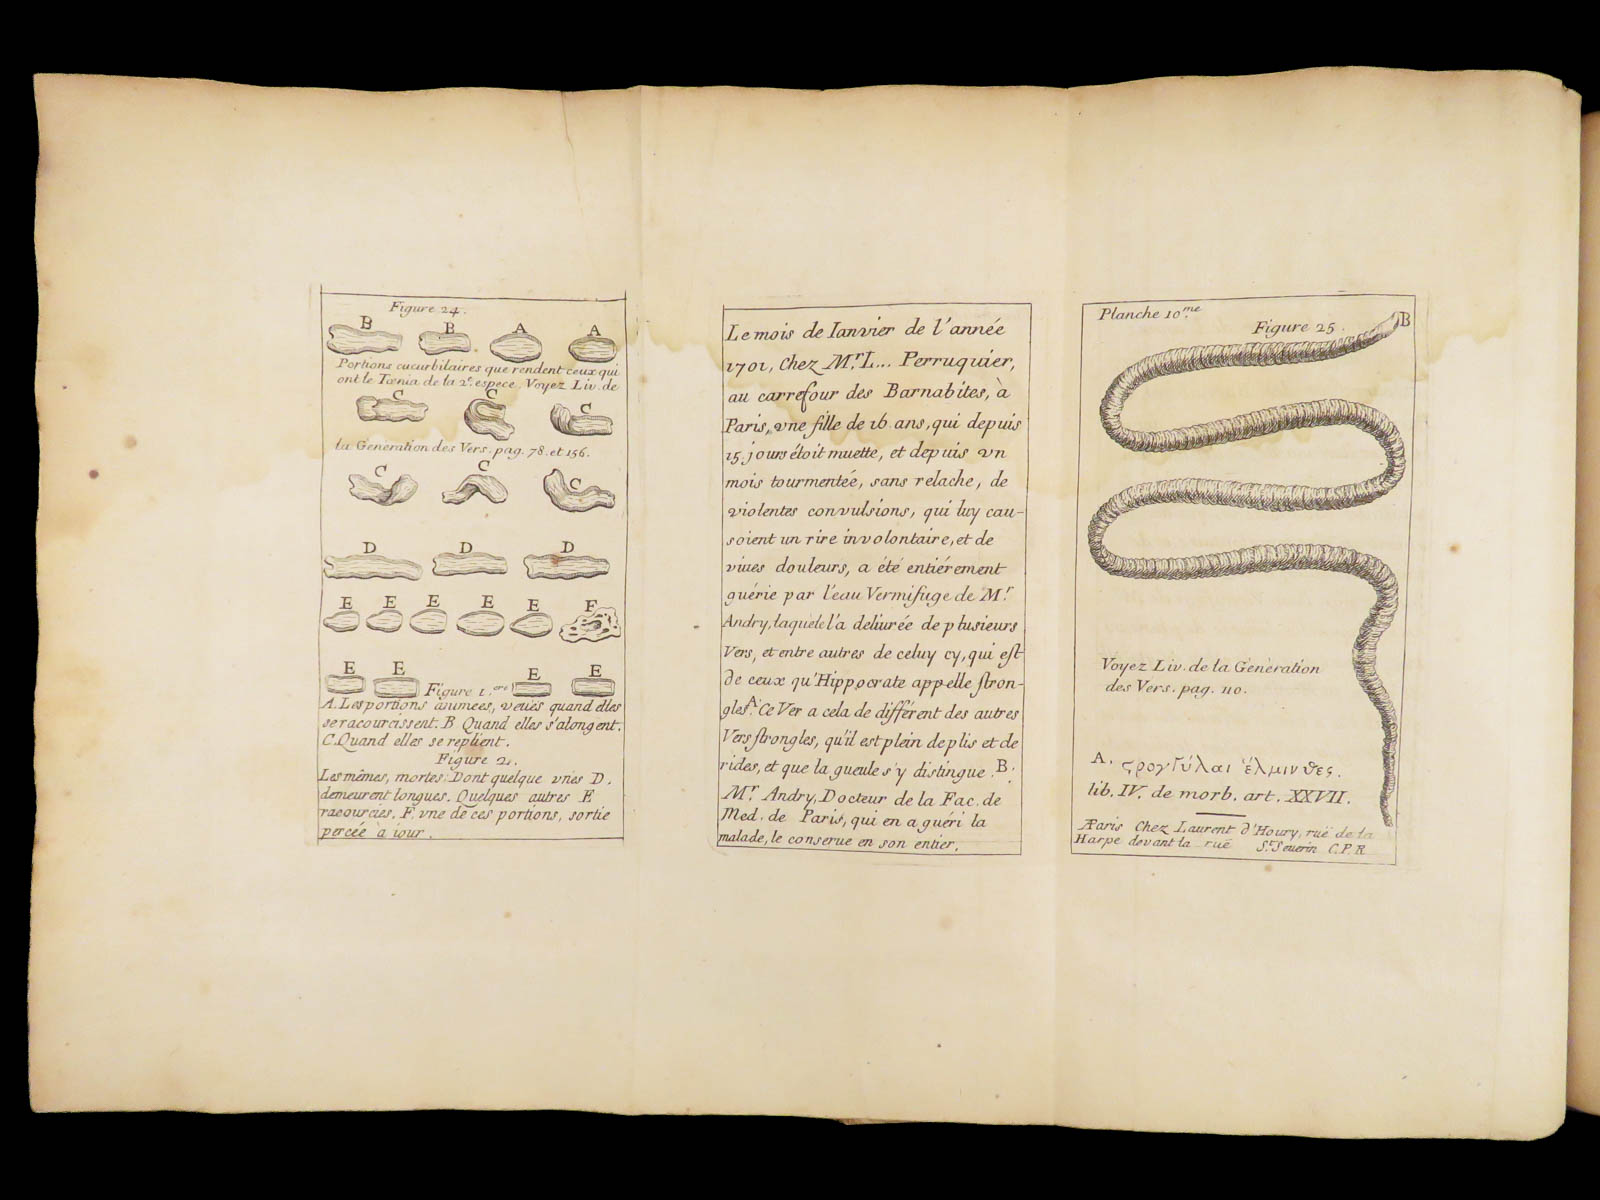 Figure 24.
B B A A
Portions cucurbilaires que rendent ceux qui
ont le Tœnia de la 2.e espece, Voyez Liv. de
C C C
la Generation des Vers. pag. 78. et 156.
C C C
D D D
E E E E E F
E E E E
Figure 1.ere
A. Les portions animées, veuës quand elles
se racourcissent. B Quand elles s'alongent.
C. Quand elles se replient.
Figure 2.
Les mêmes, mortes. Dont quelque vnes D.
demeurent longues. Quelques autres E
racourcies. F. vne de ces portions, sortie
percée à iour.
Le mois de Ianvier de l'année
1701, Chez Mr. L... Perruquier,
au carrefour des Barnabites, à
Paris, vne fille de 16 ans, qui depuis
15. jours étoit muette, et depuis vn
mois tourmentée, sans relache, de
violentes convulsions, qui luy cau-
soient un rire involontaire, et de
viues douleurs, a été entiérement
guérie par l'eau Vermifuge de Mr.
Andry, laquéle l'a deliurée de plusieurs
Vers, et entre autres de celuy cy, qui est
de ceux qu'Hippocrate appelle stron-
gles.A Ce Ver a cela de différent des autres
Vers strongles, qu'il est plein de plis et de
rides, et que la gueule s'y distingue. B.
Mr. Andry, Docteur de la Fac. de
Med. de Paris, qui en a guéri la
malade, le conserue en son entier.
Planche 10.me
Figure 25.
B
Voyez Liv. de la Géneration
des Vers. pag. 110.
A. ςρογΓύλαι ἕλμινθες.
lib. IV. de morb. art. XXVII.
A Paris Chez Laurent d'Houry, ruë de la
Harpe devant la ruë St. Seuerin C. P. R.